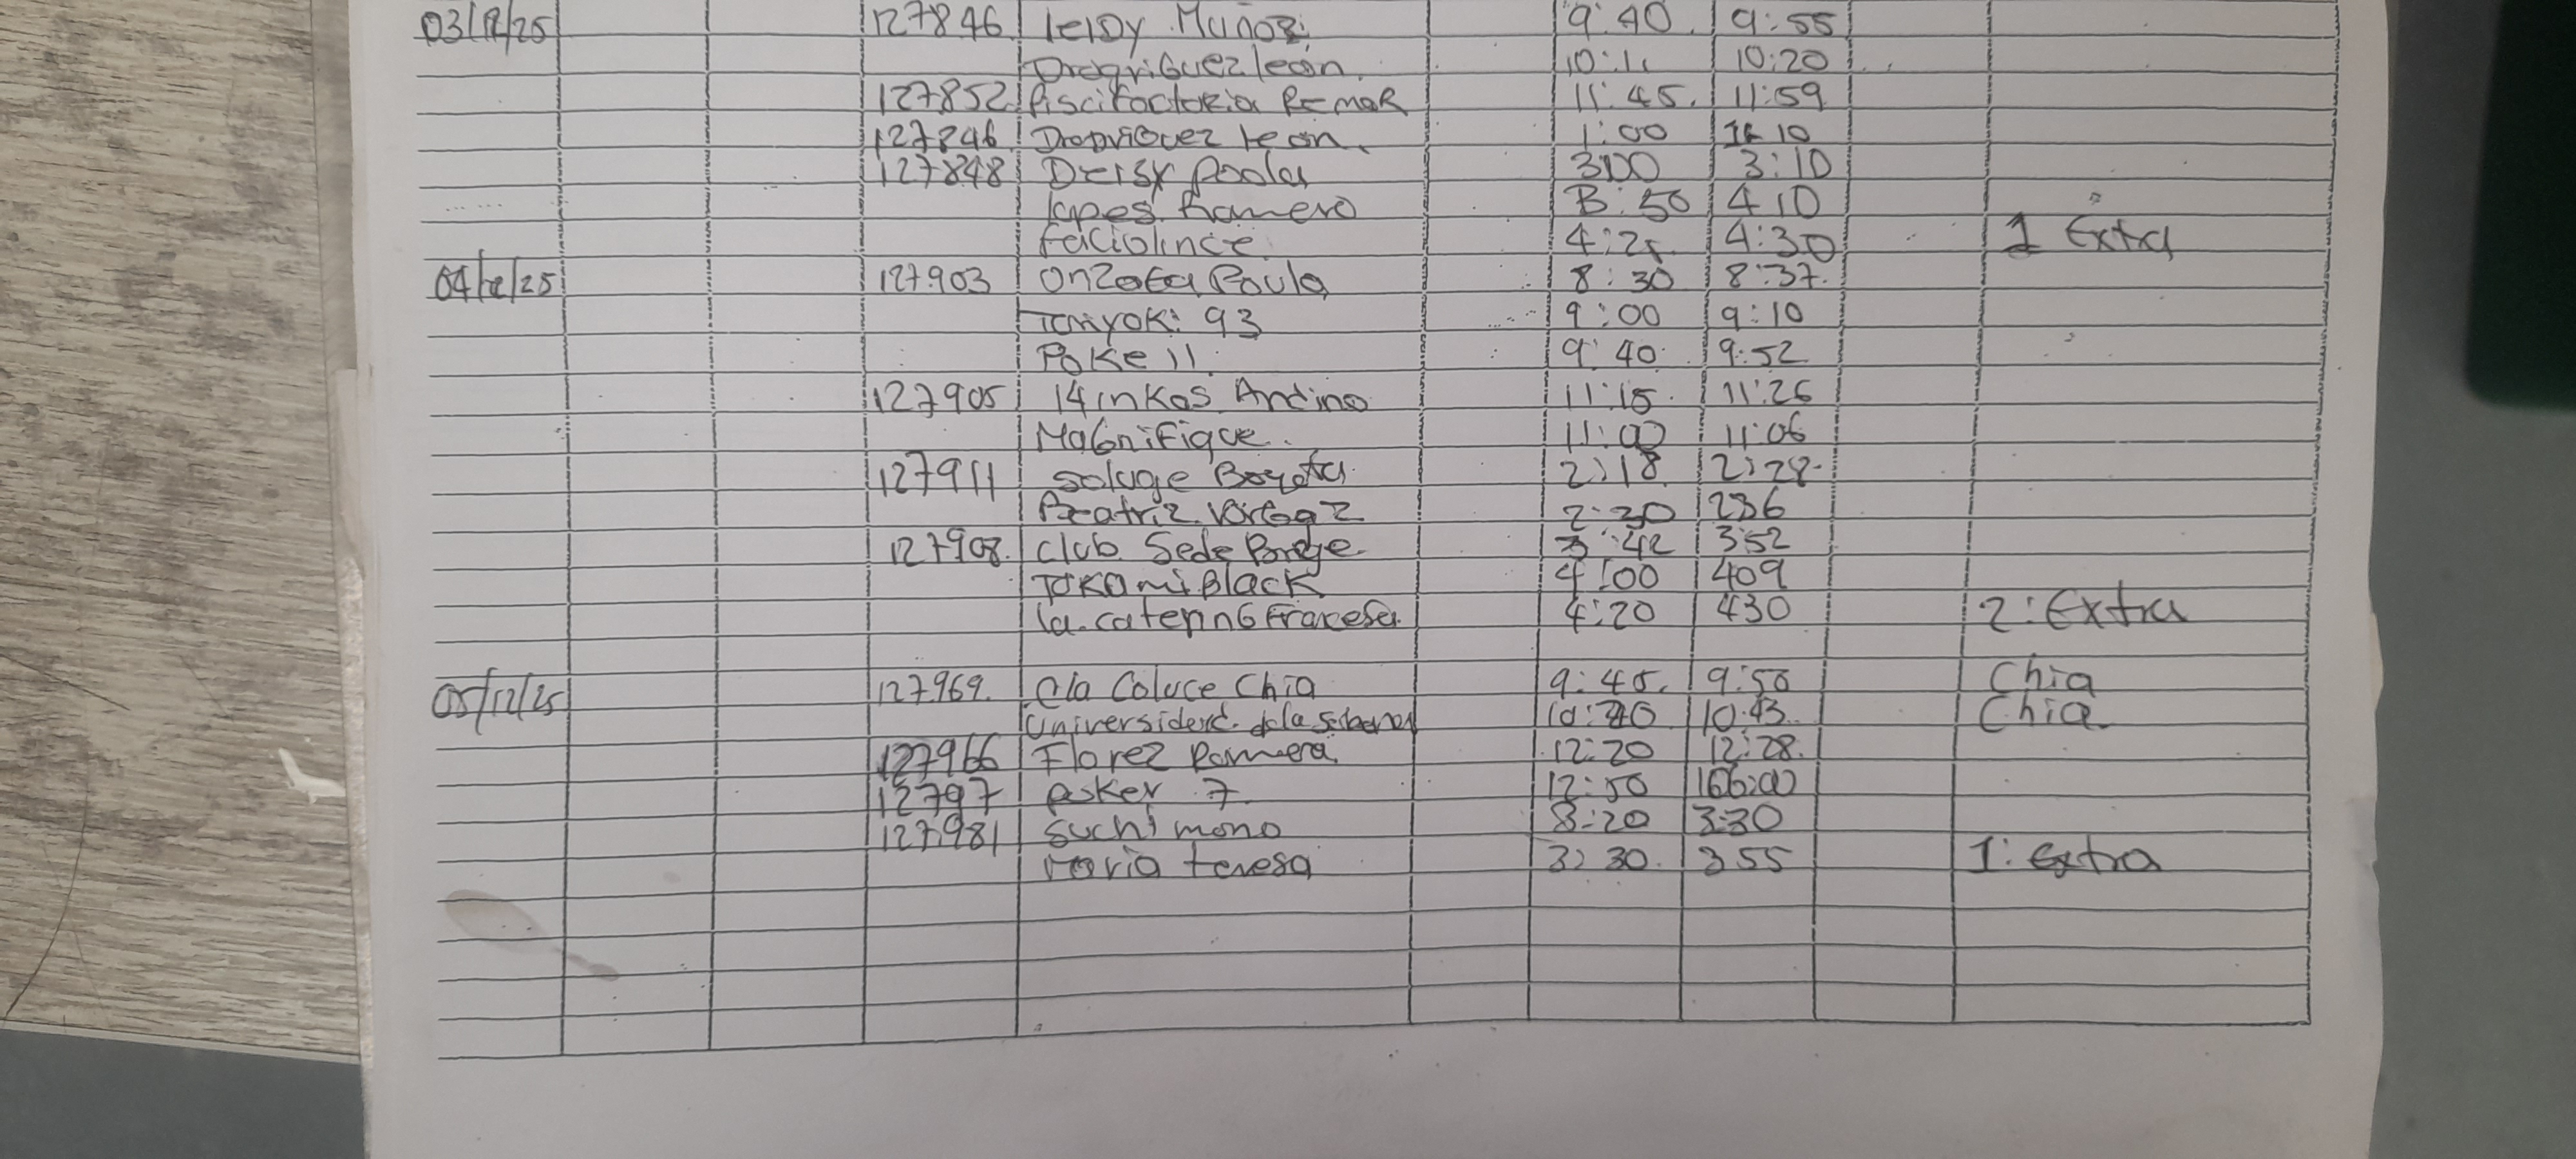 03/12/25 127846 leidy Muñoz 9:40 9:55
Drogriguez leon 10:1 10:20
127852 Piscifactoria Remar 11:45 11:59
127846 leon 1:00 10
127848 Deisy Paola 3:00 3:10
lopes Romero 3:50 4 10
faciolince 4:25 4:30 1 Extra
04/12/25 127903 Onzaga Paula 8:30 8:37
93 9:00 9:10
Poke 11 9:40 9:52
127905 14 inkas Andino 11:15 11:26
Magnifique 11:00 11:06
127911 saluge Bogota 2:18 2:28
Beatriz 2:30 236
127908 Club Sede 3:42 3:52
Tokami Black 4:00 409
la caterin6 Francesa 4:20 430 2: Extra
05/12/25 127969 Cla Coluce Chia 9:45 9:50 Chia
Universidad dela Sabana 10:40 10:43 Chia
127966 Florez Romera 12:20 12:28
12797 poker 7 12:50
127981 suchi mono 3:20 3:30
Maria teresa 3:30 3 55 1: extra